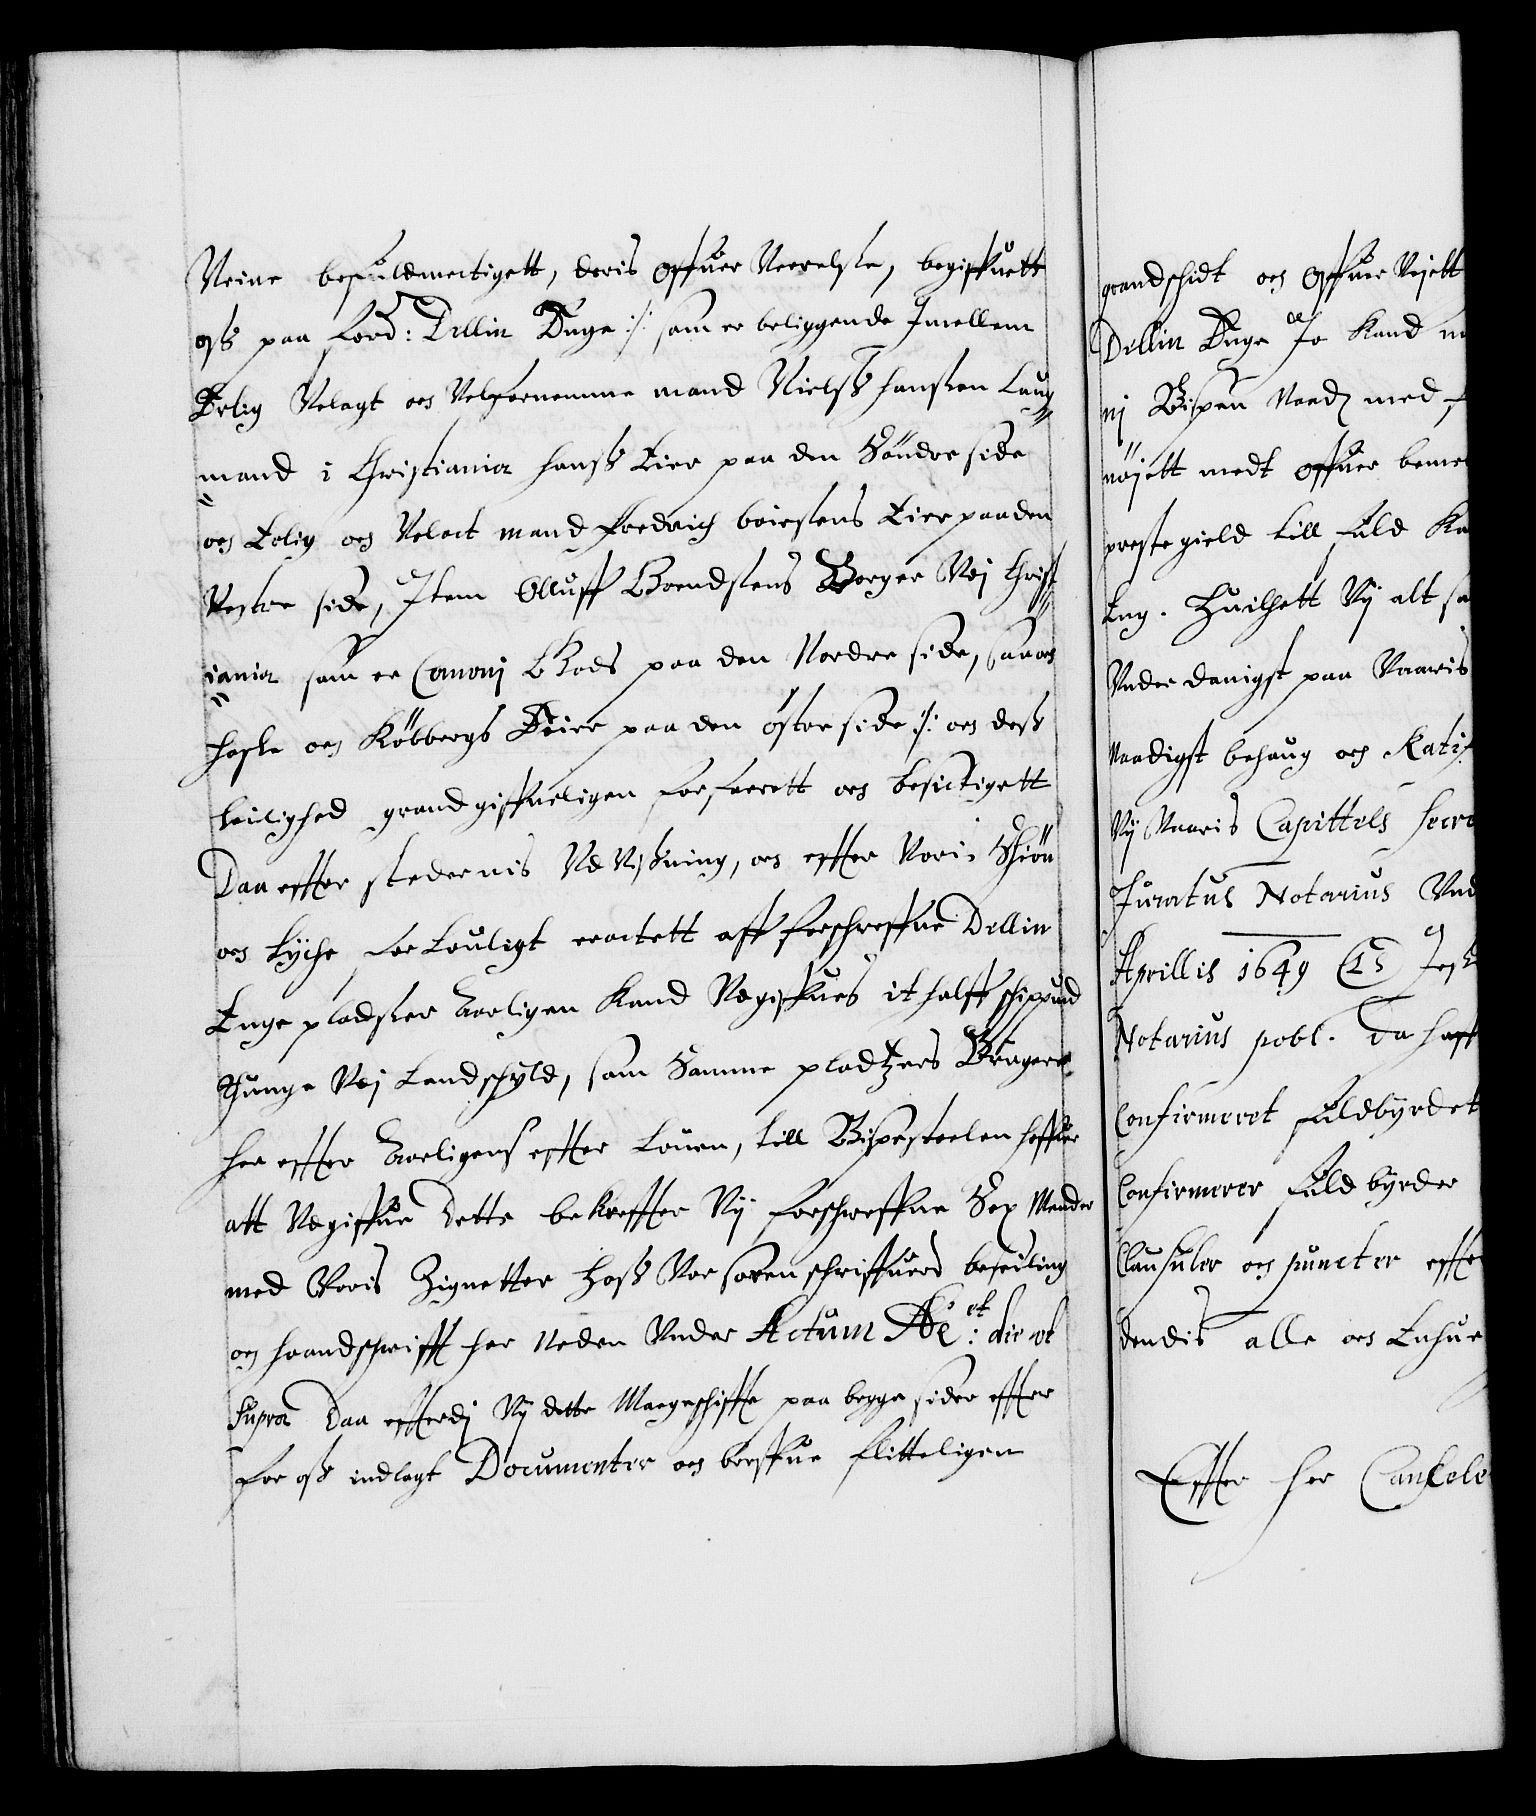 Veine befuldmectigett, deris offuer Verelse, begiffuett
oss paa ford: Dellin Enge ./. som er beliggende Imellem
Erlig Velagt och Velfornemme mand Nielss Hanssen Laug
mand i Christiania hanss Eier paa den Söndre side
och Erlig och Velact mand Fredrich boiesens Eier paa den
Vestre side, Item Olluff Boendsens Borger Vdj Christ
iania som er Canonj Gods paa den Nordre side, saa och
och Köbbergs Eier paa den östre side ./. och dess
leilighed grandgiffueligen forfarett och besictigett
Daa effter stedernis VdVissning, och effter Vori Skiön
och Lyche for Louligt eractett aff forschreffne Dellin
Enge pladtzer Aarligen Kand Vdgiffues it halff schippund
Tunge Vdj Landschyld, som Samme pladtzers Brugere
her effter Aarligens effter Louen, till Bispestoelen haffuer
att Vdgiffue Dette bekreffter Vij forschreffne Sex Mender
med Voris Zignetter Hoss Vor sorenschriffuers beseiling
och haandschrifft her Neden Vnder Actum die et
Supra Daa efterdj Vij dette Mageschiffte paa begge sider effter
for oss indlagt Documenter och breffue flitteligen
grandschidt och Offuer Veiett
Dellin Enge Jo Kand
nj Bispen Naadz med
nöjett medt offuer
prestegield till fuld
Eng. Huilchett Vij alt
Vnderdanigst paa Vaaris
Naadigst behaug och Ratif
Vij Vaaris Capittels
Juratus Notarius
Aprillis 1649 (LS)
Notarius publ. Da haff
Confirmeret fuldbyrdet
Confirmerer fuldbyrder
Clausuler och puncter effte
dendis alle och Enhue
Effter her Cancele